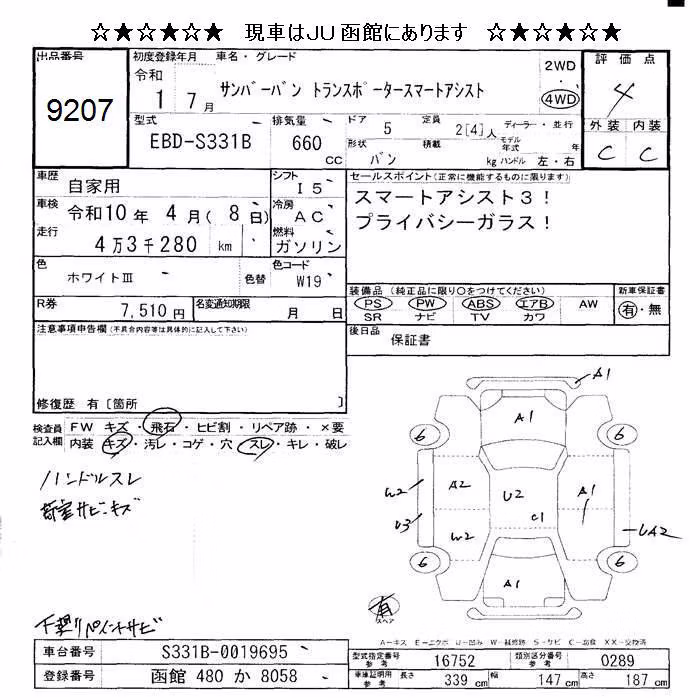 ☆★☆★☆★ 現車はJU函館にあります ☆★☆★☆★
出品番号 9207
初度登録年月 令和 1 7月
車名・グレード サンバーバン トランスポータースマートアシスト
2WD ・ 4WD
評価点 4
外装 C 内装 C
型式 EBD-S331B
排気量 660 cc
ドア 5 定員 2[4]人 ディーラー・並行
形状 バン 積載 kg モデル年式 年 ハンドル 左・右
車歴 自家用
シフト I5
車検 令和10年 4月( 8日)
冷房 AC
走行 4万3千280 km
燃料 ガソリン
セールスポイント(正常に機能するものに限ります)
スマートアシスト3!
プライバシーガラス!
色 ホワイトⅢ 色替
色コード W19
装備品 (純正品に限り○をつけてください)
PS PW ABS エアB AW
SR ナビ TV カワ
新車保証書 有・無
R券 7,510円
名変通知期限 月 日
後日品 保証書
注意事項申告欄(不具合内容等は具体的に記入して下さい)
修復歴 有[箇所 ]
検査員記入欄
FW キズ・飛石・ヒビ割・リペア跡・×要
内装 キズ・汚レ・コゲ・穴・スレ・キレ・破レ
ハンドルスレ
荷室サビキズ
下廻りペイントサビ
A1
A1
6 6
W2 A2 U2 A1
U3 W2 C1 UA2
6 6
A1
有
スペア
A-キズ E-エクボ U-凹み W-補修跡 S-サビ C-腐食 XX-交換済
車台番号 S331B-0019695
登録番号 函館 480 か 8058
型式指定番号 参考 16752 類別区分番号 参考 0289
車庫証明用 参考 長さ 339 cm 幅 147 cm 高さ 187 cm